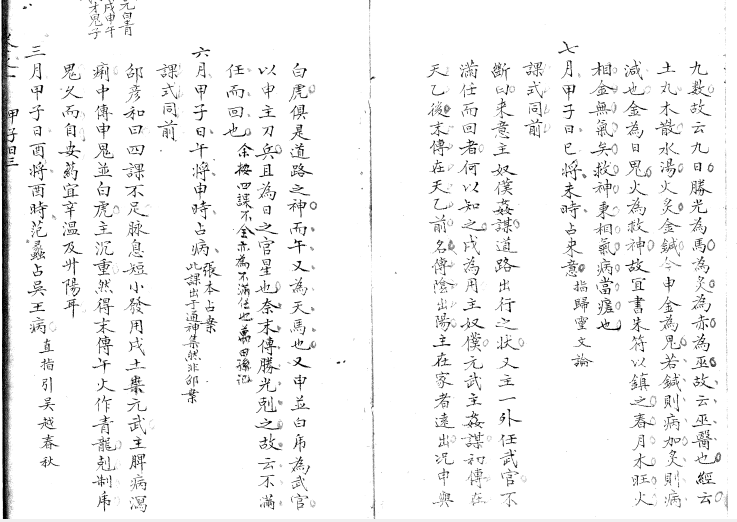 九數故云九日勝光為馬為灸為赤為巫故云巫醫也經云
土丸木散水湯火灸金鍼今申金為鬼若鍼則病加灸則病
減也金為日鬼火為救神故宜書朱符以鎮之春月木旺火
相金無氣矣救神乗相氣病當瘥也
七月甲子日巳將未時占來意 指歸靈文論
課式同前
斷曰來意主奴僕姦謀道路出行之狀又主一外任武官不
滿任而回者何以知之戌為用主奴僕元武主姦謀初傳在
天乙後末傳在天乙前名傳陰出陽主在家者遠出况申與
白虎俱是道路之神而午又為天馬也又申並白虎為武官
以申主刀兵且為日之官星也奈末傳勝光剋之故云不滿
任而回也 余按四課不全亦為不滿任也
六月甲子日午將申時占病 張本占案 此課出于通神集然非邵案
課式同前
邵彦和曰四課不足脉息短小發用戌土乗元武主脾病瀉
痢中傳申鬼並白虎主沉重然得末傳午火作青龍剋制虎
鬼久而自安藥宜辛溫及升陽耳
三月甲子日酉將酉時范蠡占吳王病 直指引吳越春秋
甲子日三